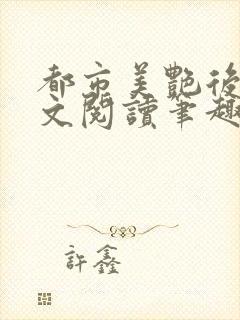 都市美艷後
文閱讀筆趣
許鑫